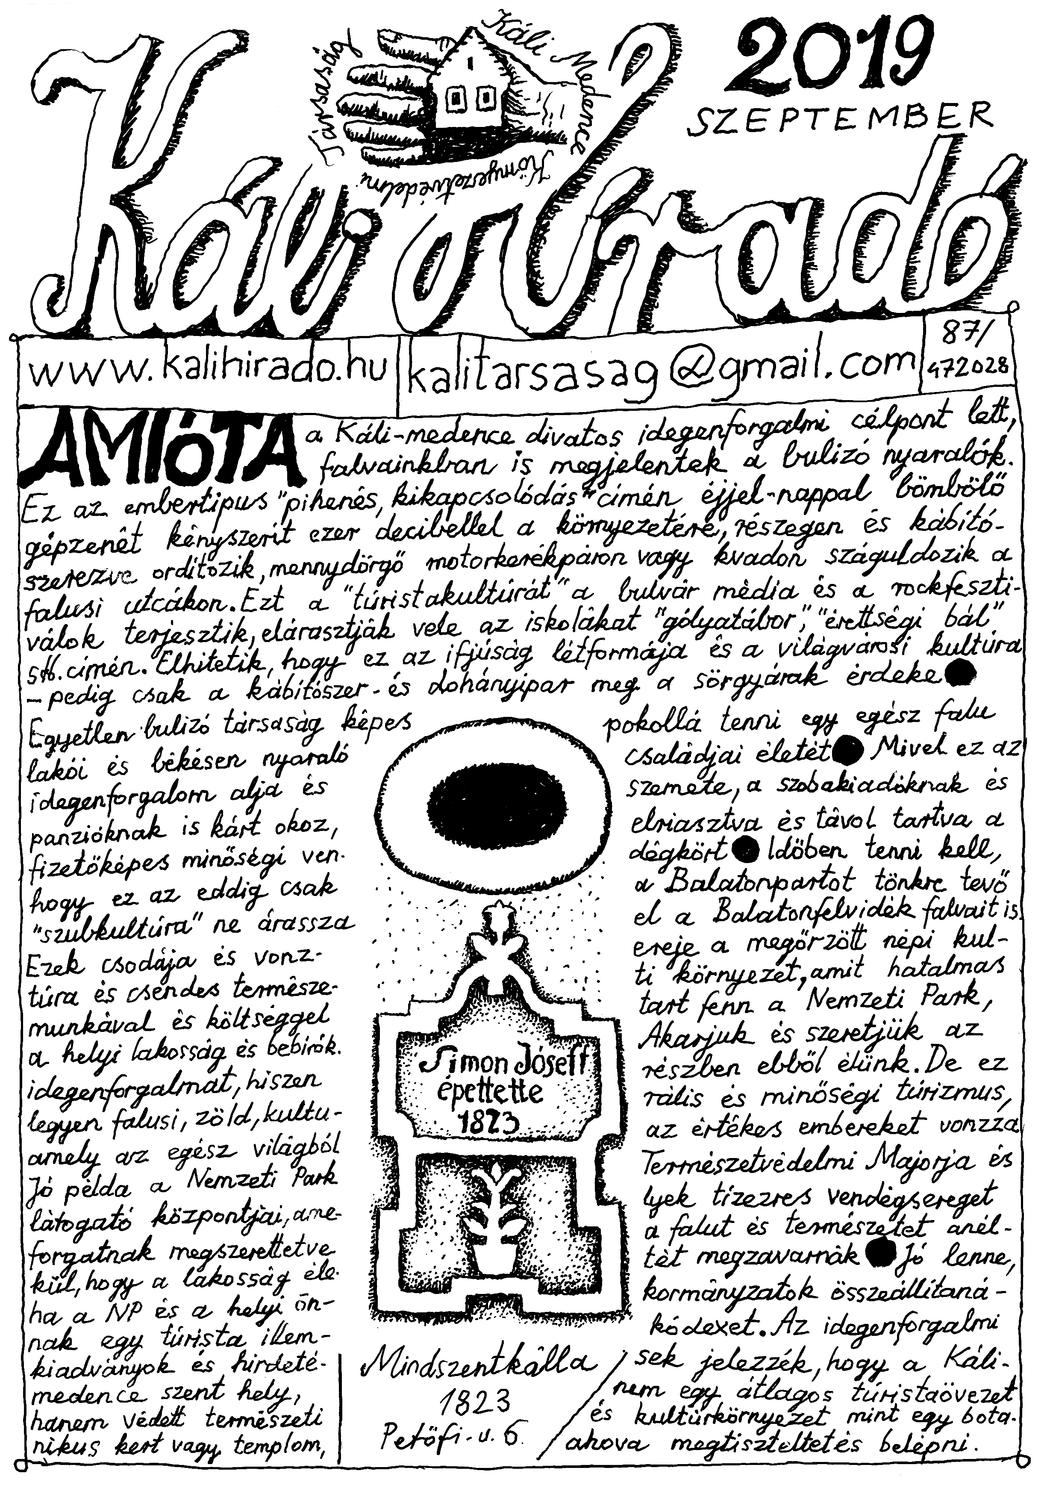 2019
SZEPTEMBER
Káli Medence Környezetvédelmi Társaság
Káli Híradó
www.kalihirado.hu
kalitarsasag@gmail.com
87/
472028
AMIÓTA a Káli-medence divatos idegenforgalmi célpont lett,
falvainkban is megjelentek a bulizó nyaralók.
Ez az embertipus "pihenés, kikapcsolódás" címén éjjel-nappal bömbölő
gépzenét kényszerít ezer decibellel a környezetére, részegen és kábító-
szerezve ordítozik, mennydörgő motorkerékpáron vagy kvadon száguldozik a
falusi utcákon. Ezt a "túristakultúrát" a bulvár média és a rockfeszti-
válok terjesztik, elárasztják vele az iskolákat "gólyatábor", "érettségi bál"
stb. címén. Elhitetik, hogy ez az ifjúság létformája és a világvárosi kultúra
- pedig csak a kábítószer- és dohányipar meg a sörgyárak érdeke
Egyetlen bulizó társaság képes pokollá tenni egy egész falu
lakói és békésen nyaraló családjai életét Mivel ez az
idegenforgalom alja és szemete, a szobakiadóknak és
panzióknak is kárt okoz, elriasztva és távol tartva a
fizetőképes minőségi ven- dégkört Időben tenni kell,
hogy ez az eddig csak a Balatonpartot tönkre tevő
"szubkultúra" ne árassza el a Balatonfelvidék falvait is.
Ezek csodája és vonz- ereje a megőrzött népi kul-
túra és csendes természe- ti környezet, amit hatalmas
munkával és költséggel tart fenn a Nemzeti Park,
a helyi lakosság és bebírók. Akarjuk és szeretjük az
idegenforgalmat, hiszen részben ebből élünk. De ez
legyen falusi, zöld, kultu- rális és minőségi túrizmus,
amely az egész világból az értékes embereket vonzza
Jó példa a Nemzeti Park Természetvédelmi Majorja és
látogató központjai, ame- lyek tízezres vendégsereget
forgatnak megszerettetve a falut és természetet anél-
kül, hogy a lakosság éle- tét megzavarnák Jó lenne,
ha a NP és a helyi ön- kormányzatok összeállítaná-
nak egy túrista illem- kódexet. Az idegenforgalmi
kiadványok és hirdeté- sek jelezzék, hogy a Káli-
medence szent hely, nem egy átlagos túristaövezet
hanem védett természeti és kultúrkörnyezet mint egy bota-
nikus kert vagy templom, ahova megtiszteltetés belépni.
Simon Jóseff
épettette
1823
Mindszentkálla
1823
Petőfi-u. 6.